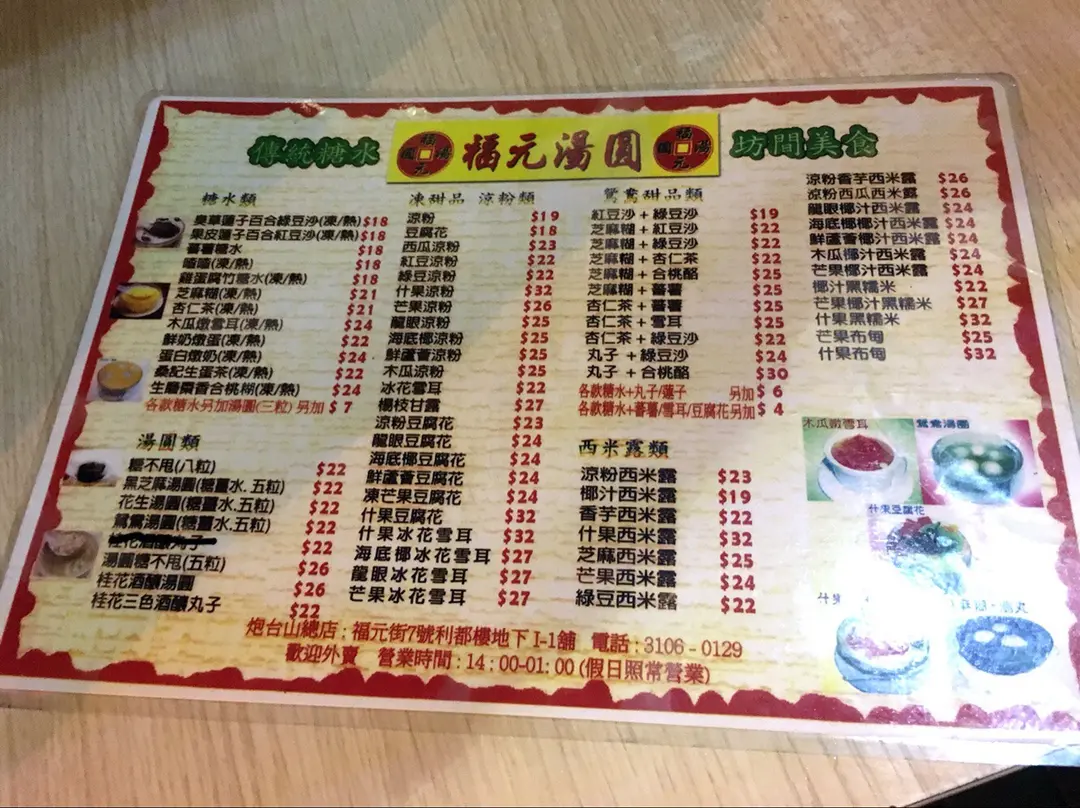 傳統糖水
福元湯圓
福元湯圓
福元湯圓
坊間美食
糖水類
臭草蓮子百合綠豆沙(凍/熱) $18
果皮蓮子百合紅豆沙(凍/熱) $18
蕃薯糖水 $18
喳喳(凍/熱) $18
雞蛋腐竹糖水(凍/熱) $18
芝麻糊(凍/熱) $21
杏仁茶(凍/熱) $21
木瓜燉雪耳(凍/熱) $24
鮮奶燉蛋(凍/熱) $22
蛋白燉奶(凍/熱) $24
桑記生蛋茶(凍/熱) $22
生磨棗香合桃糊(凍/熱) $24
各款糖水另加湯圓(三粒) 另加 $ 7
湯圓類
糖不甩(八粒) $22
黑芝麻湯圓(糖薑水.五粒) $22
花生湯圓(糖薑水.五粒) $22
鴛鴦湯圓(糖薑水.五粒) $22
桂花酒釀丸子 $22
湯圓糖不甩(五粒) $26
桂花酒釀湯圓 $26
桂花三色酒釀丸子 $22
凍甜品 涼粉類
涼粉 $19
豆腐花 $18
西瓜涼粉 $23
紅豆涼粉 $22
綠豆涼粉 $22
什果涼粉 $32
芒果涼粉 $26
龍眼涼粉 $25
海底椰涼粉 $25
鮮蘆薈涼粉 $25
木瓜涼粉 $25
冰花雪耳 $22
楊枝甘露 $27
涼粉豆腐花 $23
龍眼豆腐花 $24
海底椰豆腐花 $24
鮮蘆薈豆腐花 $24
凍芒果豆腐花 $24
什果豆腐花 $32
什果冰花雪耳 $32
海底椰冰花雪耳 $27
龍眼冰花雪耳 $27
芒果冰花雪耳 $27
鴛鴦甜品類
紅豆沙 + 綠豆沙 $19
芝麻糊 + 紅豆沙 $22
芝麻糊 + 綠豆沙 $22
芝麻糊 + 杏仁茶 $22
芝麻糊 + 合桃酪 $25
芝麻糊 + 蕃薯 $25
杏仁茶 + 蕃薯 $25
杏仁茶 + 雪耳 $25
杏仁茶 + 綠豆沙 $25
丸子 + 綠豆沙 $24
丸子 + 合桃酪 $30
各款糖水+丸子/蓮子 另加 $ 6
各款糖水+蕃薯/雪耳/豆腐花 另加 $ 4
西米露類
涼粉西米露 $23
椰汁西米露 $19
香芋西米露 $22
什果西米露 $32
芝麻西米露 $25
芒果西米露 $24
綠豆西米露 $22
涼粉香芋西米露 $26
涼粉西瓜西米露 $26
龍眼椰汁西米露 $24
海底椰椰汁西米露 $24
鮮蘆薈椰汁西米露 $24
木瓜椰汁西米露 $24
芒果椰汁西米露 $24
椰汁黑糯米 $22
芒果椰汁黑糯米 $27
什果黑糯米 $32
芒果布甸 $25
什果布甸 $32
木瓜燉雪耳
鴛鴦湯圓
什果豆腐花
什果
丸
炮台山總店 : 福元街7號利都樓地下 I-1舖 電話 : 3106 - 0129
歡迎外賣 營業時間 : 14 : 00-01 : 00 (假日照常營業)